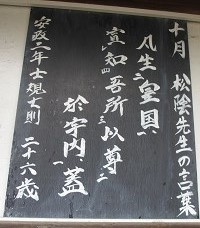 十月 松陰先生の言葉
凡生二皇国一
宜レ知二吾所三以尊二
於宇内一蓋
安政二年士規七則 二十六歳